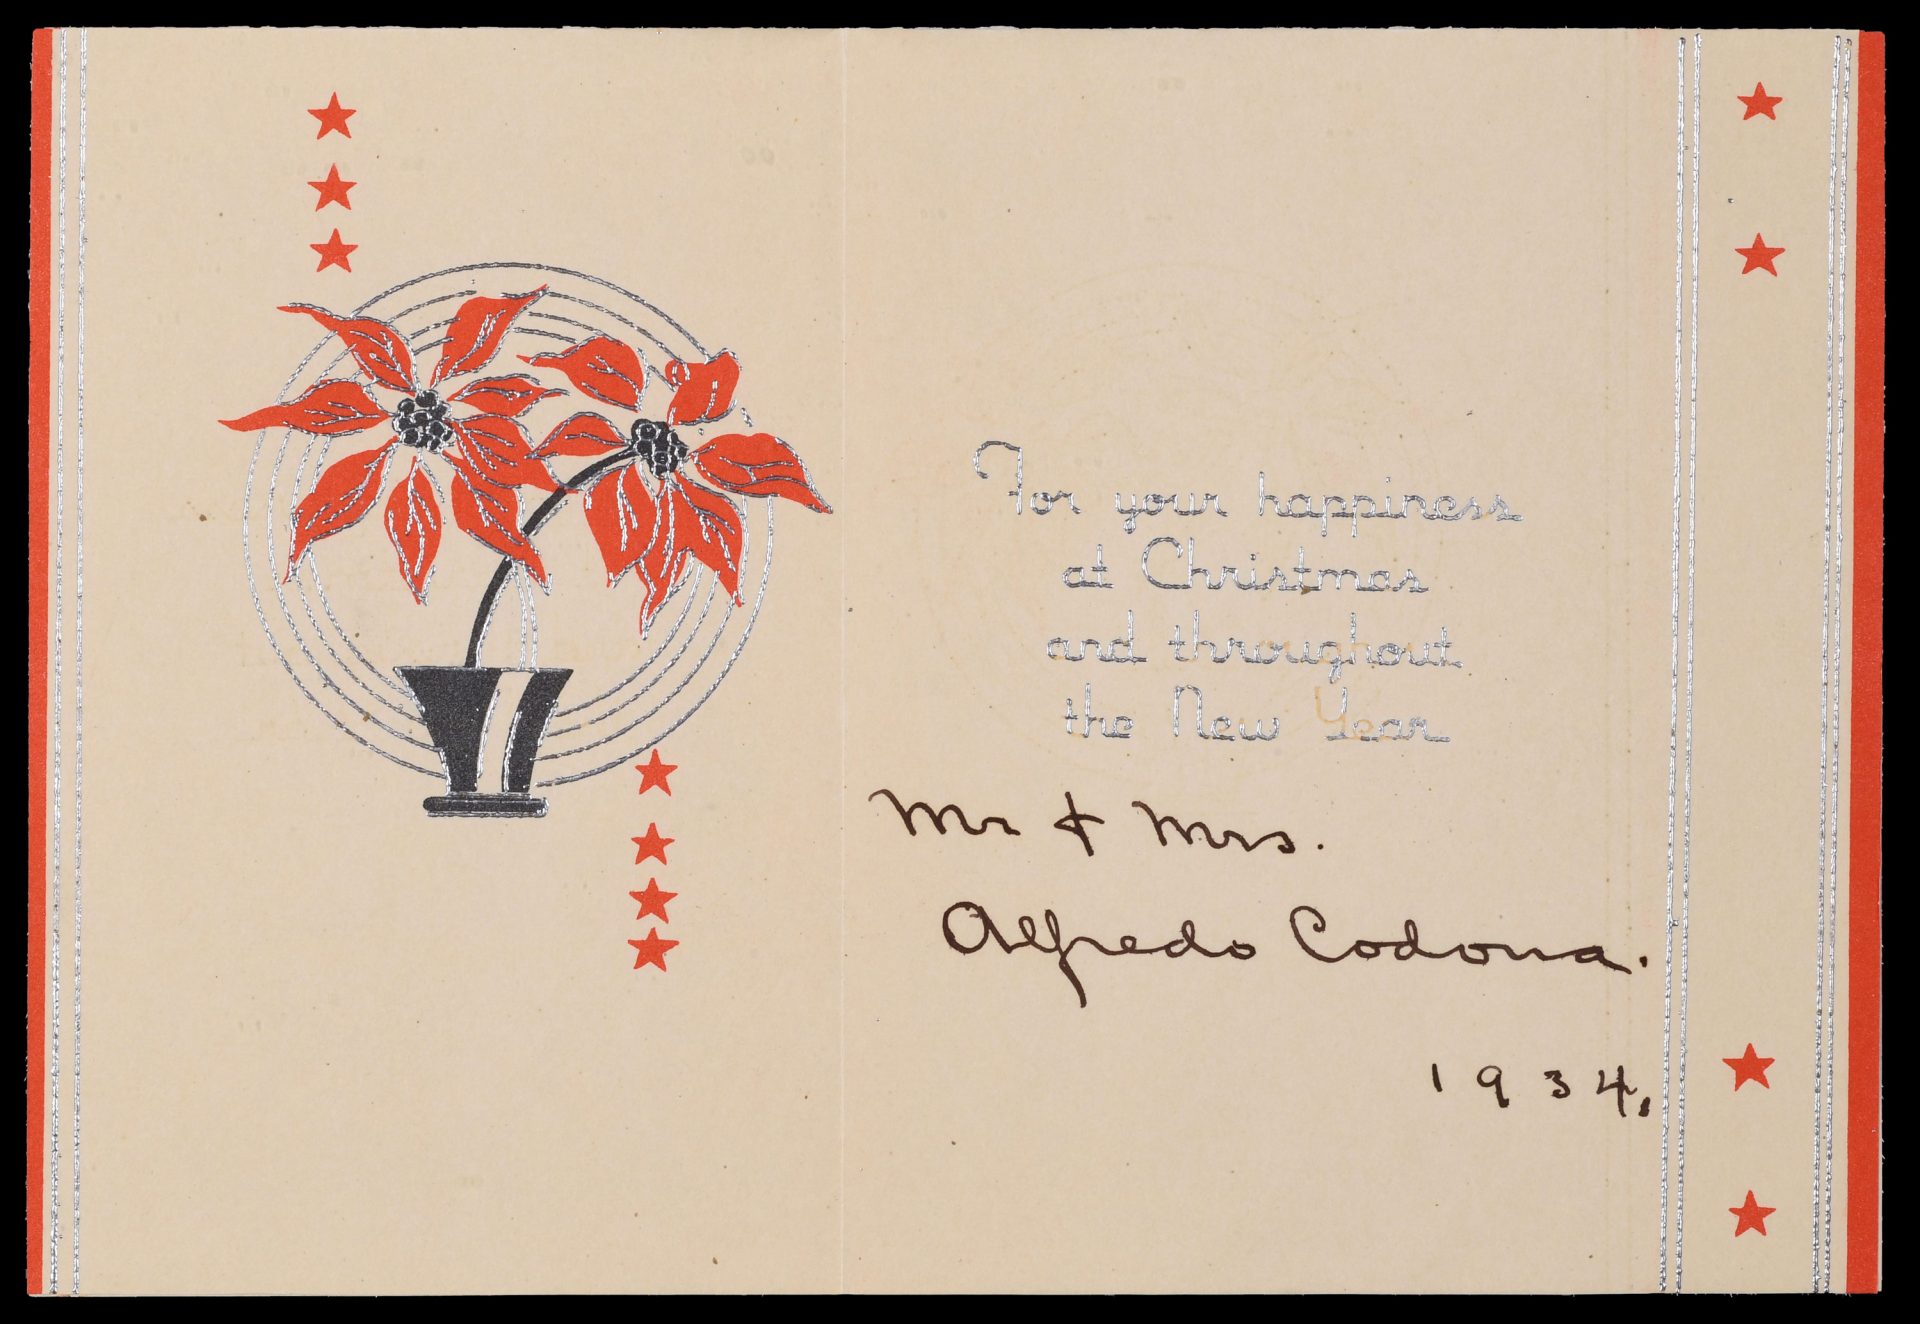 For your happiness
at Christmas
and throughout
the New Year
Mr & Mrs.
Alfredo Codona.
1934.